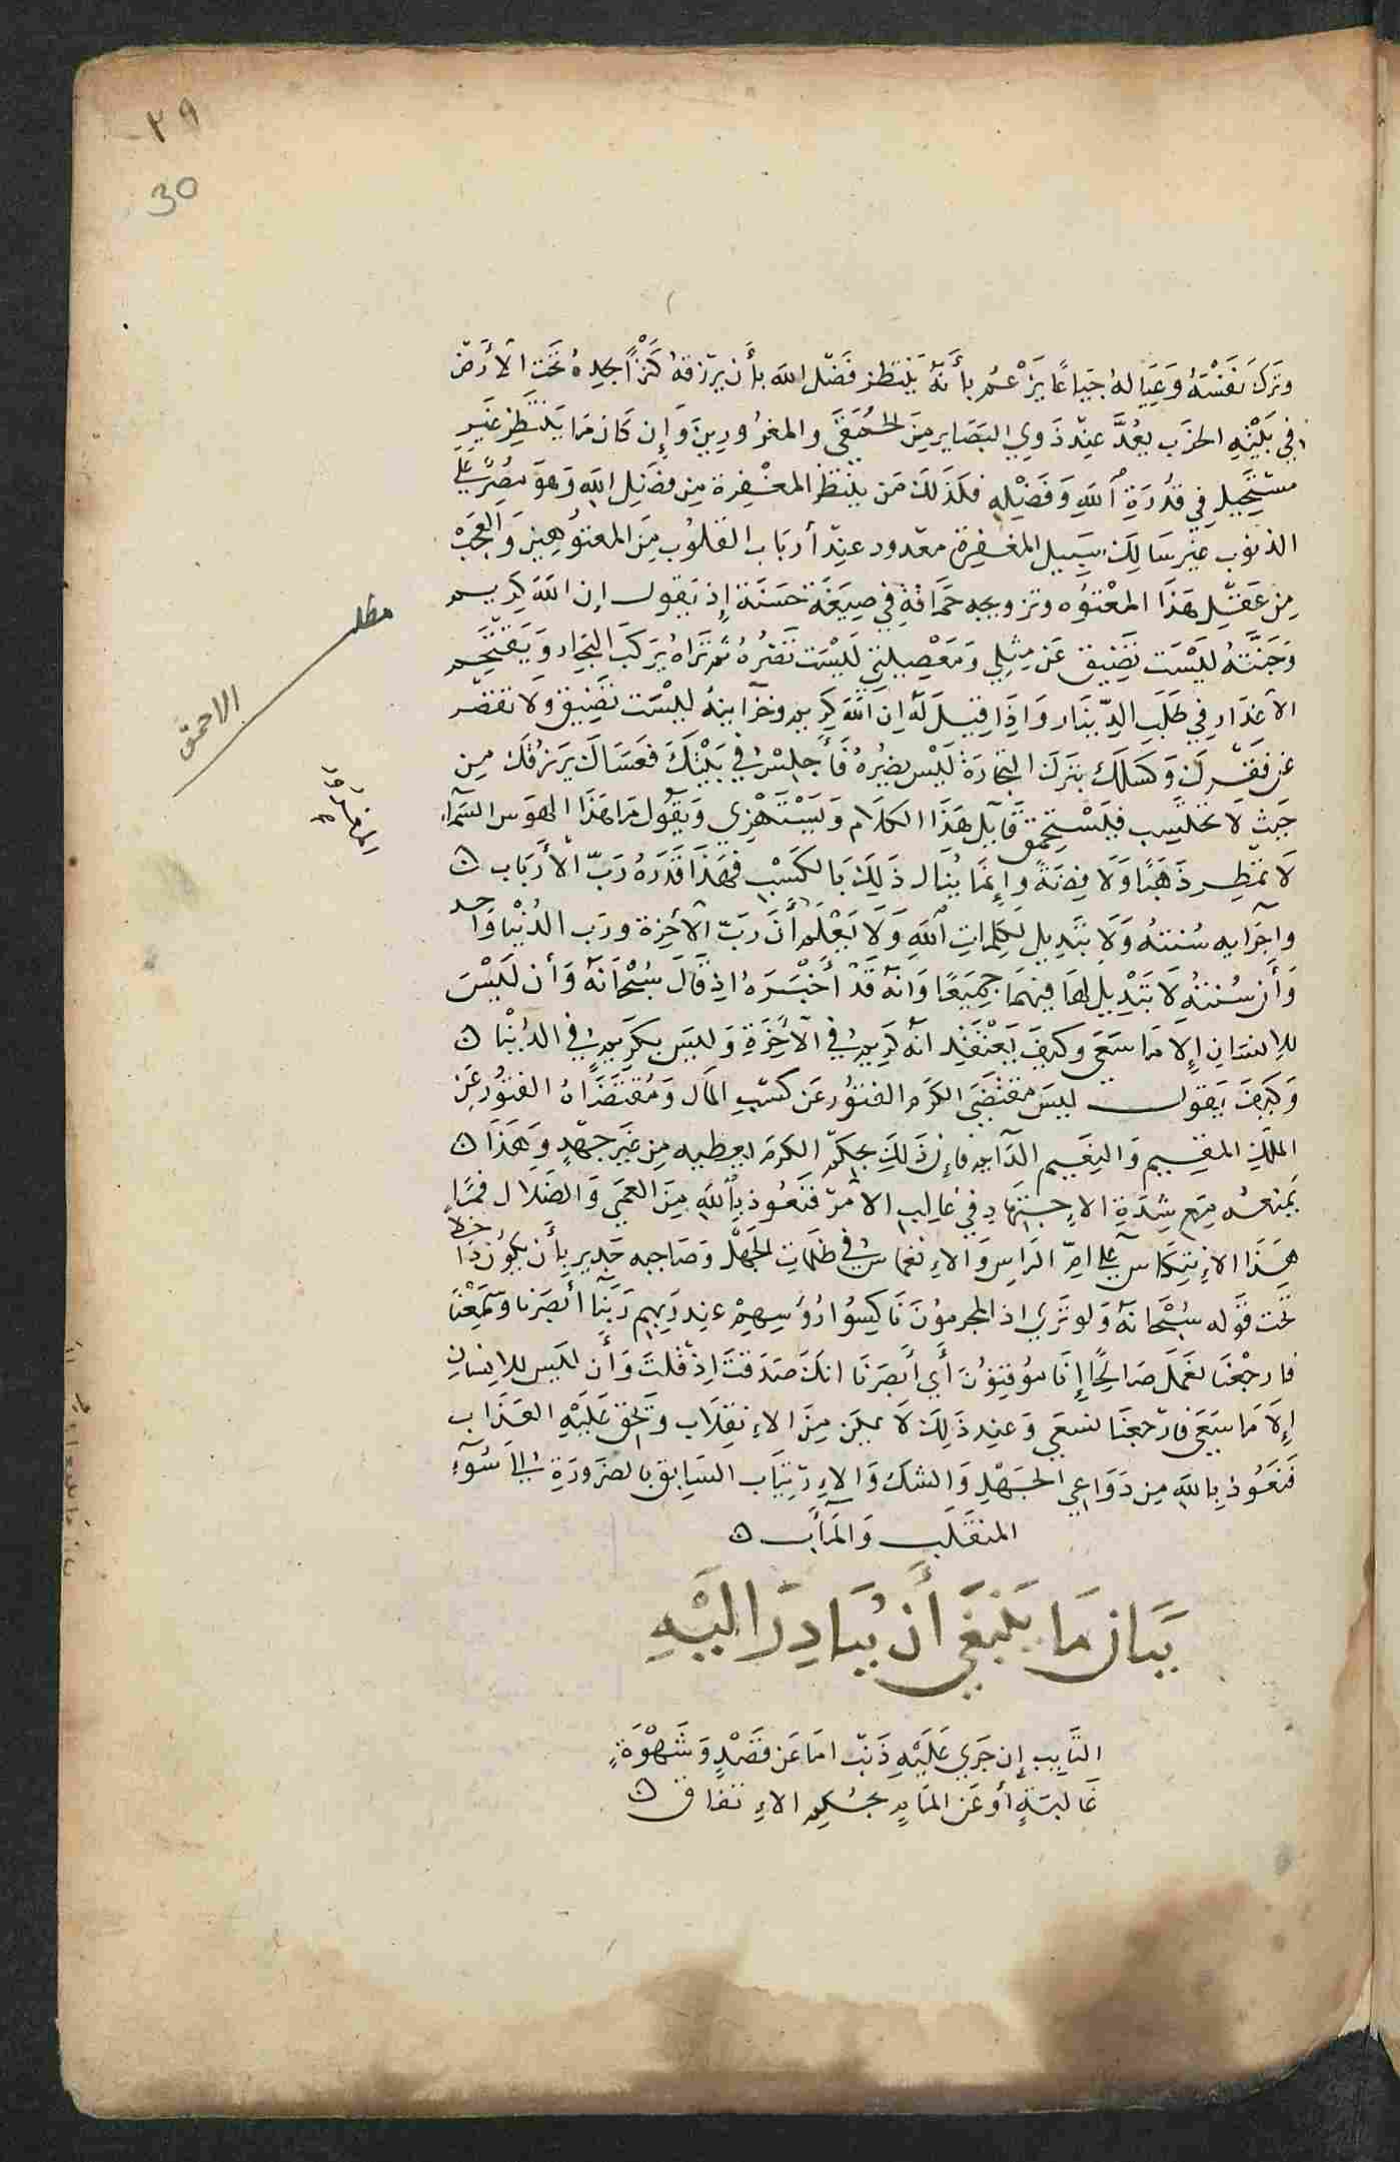 ٢٩
30
وترك نفسه وعياله جياعا يزعم بأنه ينتظر فضل الله بأن يرزقه كنزا يجده تحت الأرض
في بيته الخرب يعد عند ذوي البصاير من الحمقى والمغرورين وإن كان ما ينتظر غير
مستحيل في قدرة الله وفضله فكذلك من ينتظر المغفرة من فضل الله وهو مصر على
الذنوب غير سالك سبيل المغفرة معدود عند أرباب القلوب من المعتوهين والعجب
من عقل هذا المعتوه وترويجه حماقة في صيغة حسنة إذ يقول إن الله كريم
وجنته ليست تضيق عن مثلي ومعصيتي ليست تضره ثم تراه يركب البحار ويقتحم
الاعذار في طلب الدينار وإذا قيل له ان الله كريم وخزاينه ليست تضيق ولا تقصر
عن فقرك وكسلك بترك التجارة ليس يضره فأجلس في بيتك فعساك يرزقك من
حيث لا تحتسب فيستحمق قايل هذا الكلام ويستهزي ويقول ما هذا الهوس السماء
لا تمطر ذهبا ولا فضة وإنما ينال ذلك بالكسب فهذا قدره رب الأرباب ه
واجرا به سنته ولا تبديل لكلمات الله ولا يعلم أن رب الأخرة ورب الدنيا واحد
وأن سنته لا تبديل لها فيهما جميعا وانه قد أخبره اذ قال سبحانه وأن ليس
للإنسان إلا ما سعى وكيف يعتقد انه كريم في الأخرة وليس بكريم في الدنيا ه
وكيف يقول ليس مقتضى الكرم الفتور عن كسب المال ومقتضاه الفتور عن
الملك المقيم والنعيم الدآيم فإن ذلك بحكم الكرم يعطيه من غير جهد وهذا ه
يمنعه مع شدة الاجتهاد في غالب الأمر فنعوذ بالله من العمى والضلال فما
هذا الإنتكاس على ام الراس والإنغماس في ظلمات الجهل وصاحبه جدير بأن يكون داخلا
تحت قوله سبحانه ولو ترى اذ المجرمون ناكسوا رؤسهم عند ربهم ربنآ أبصرنا وسمعنا
فارجعنا نعمل صالحا إنا موقنون أي أبصرنا انك صدقت اذ قلت وأن ليس للإنسان
إلا ما سعى فارجعنا نسعى وعند ذلك لا يمكن من الإنقلاب وتحق عليه العذاب
فنعوذ بالله من دواعي الجهل والشك والإرتياب السابق بالضرورة إلى سوء
المنقلب والمآب ه
بيان ما ينبغي أن يبادر اليه
التايب إن جرى عليه ذنب اما عن قصد وشهوة
غالبة أو عن المام بحكم الإتفاق ه
مطلب
الاحمق